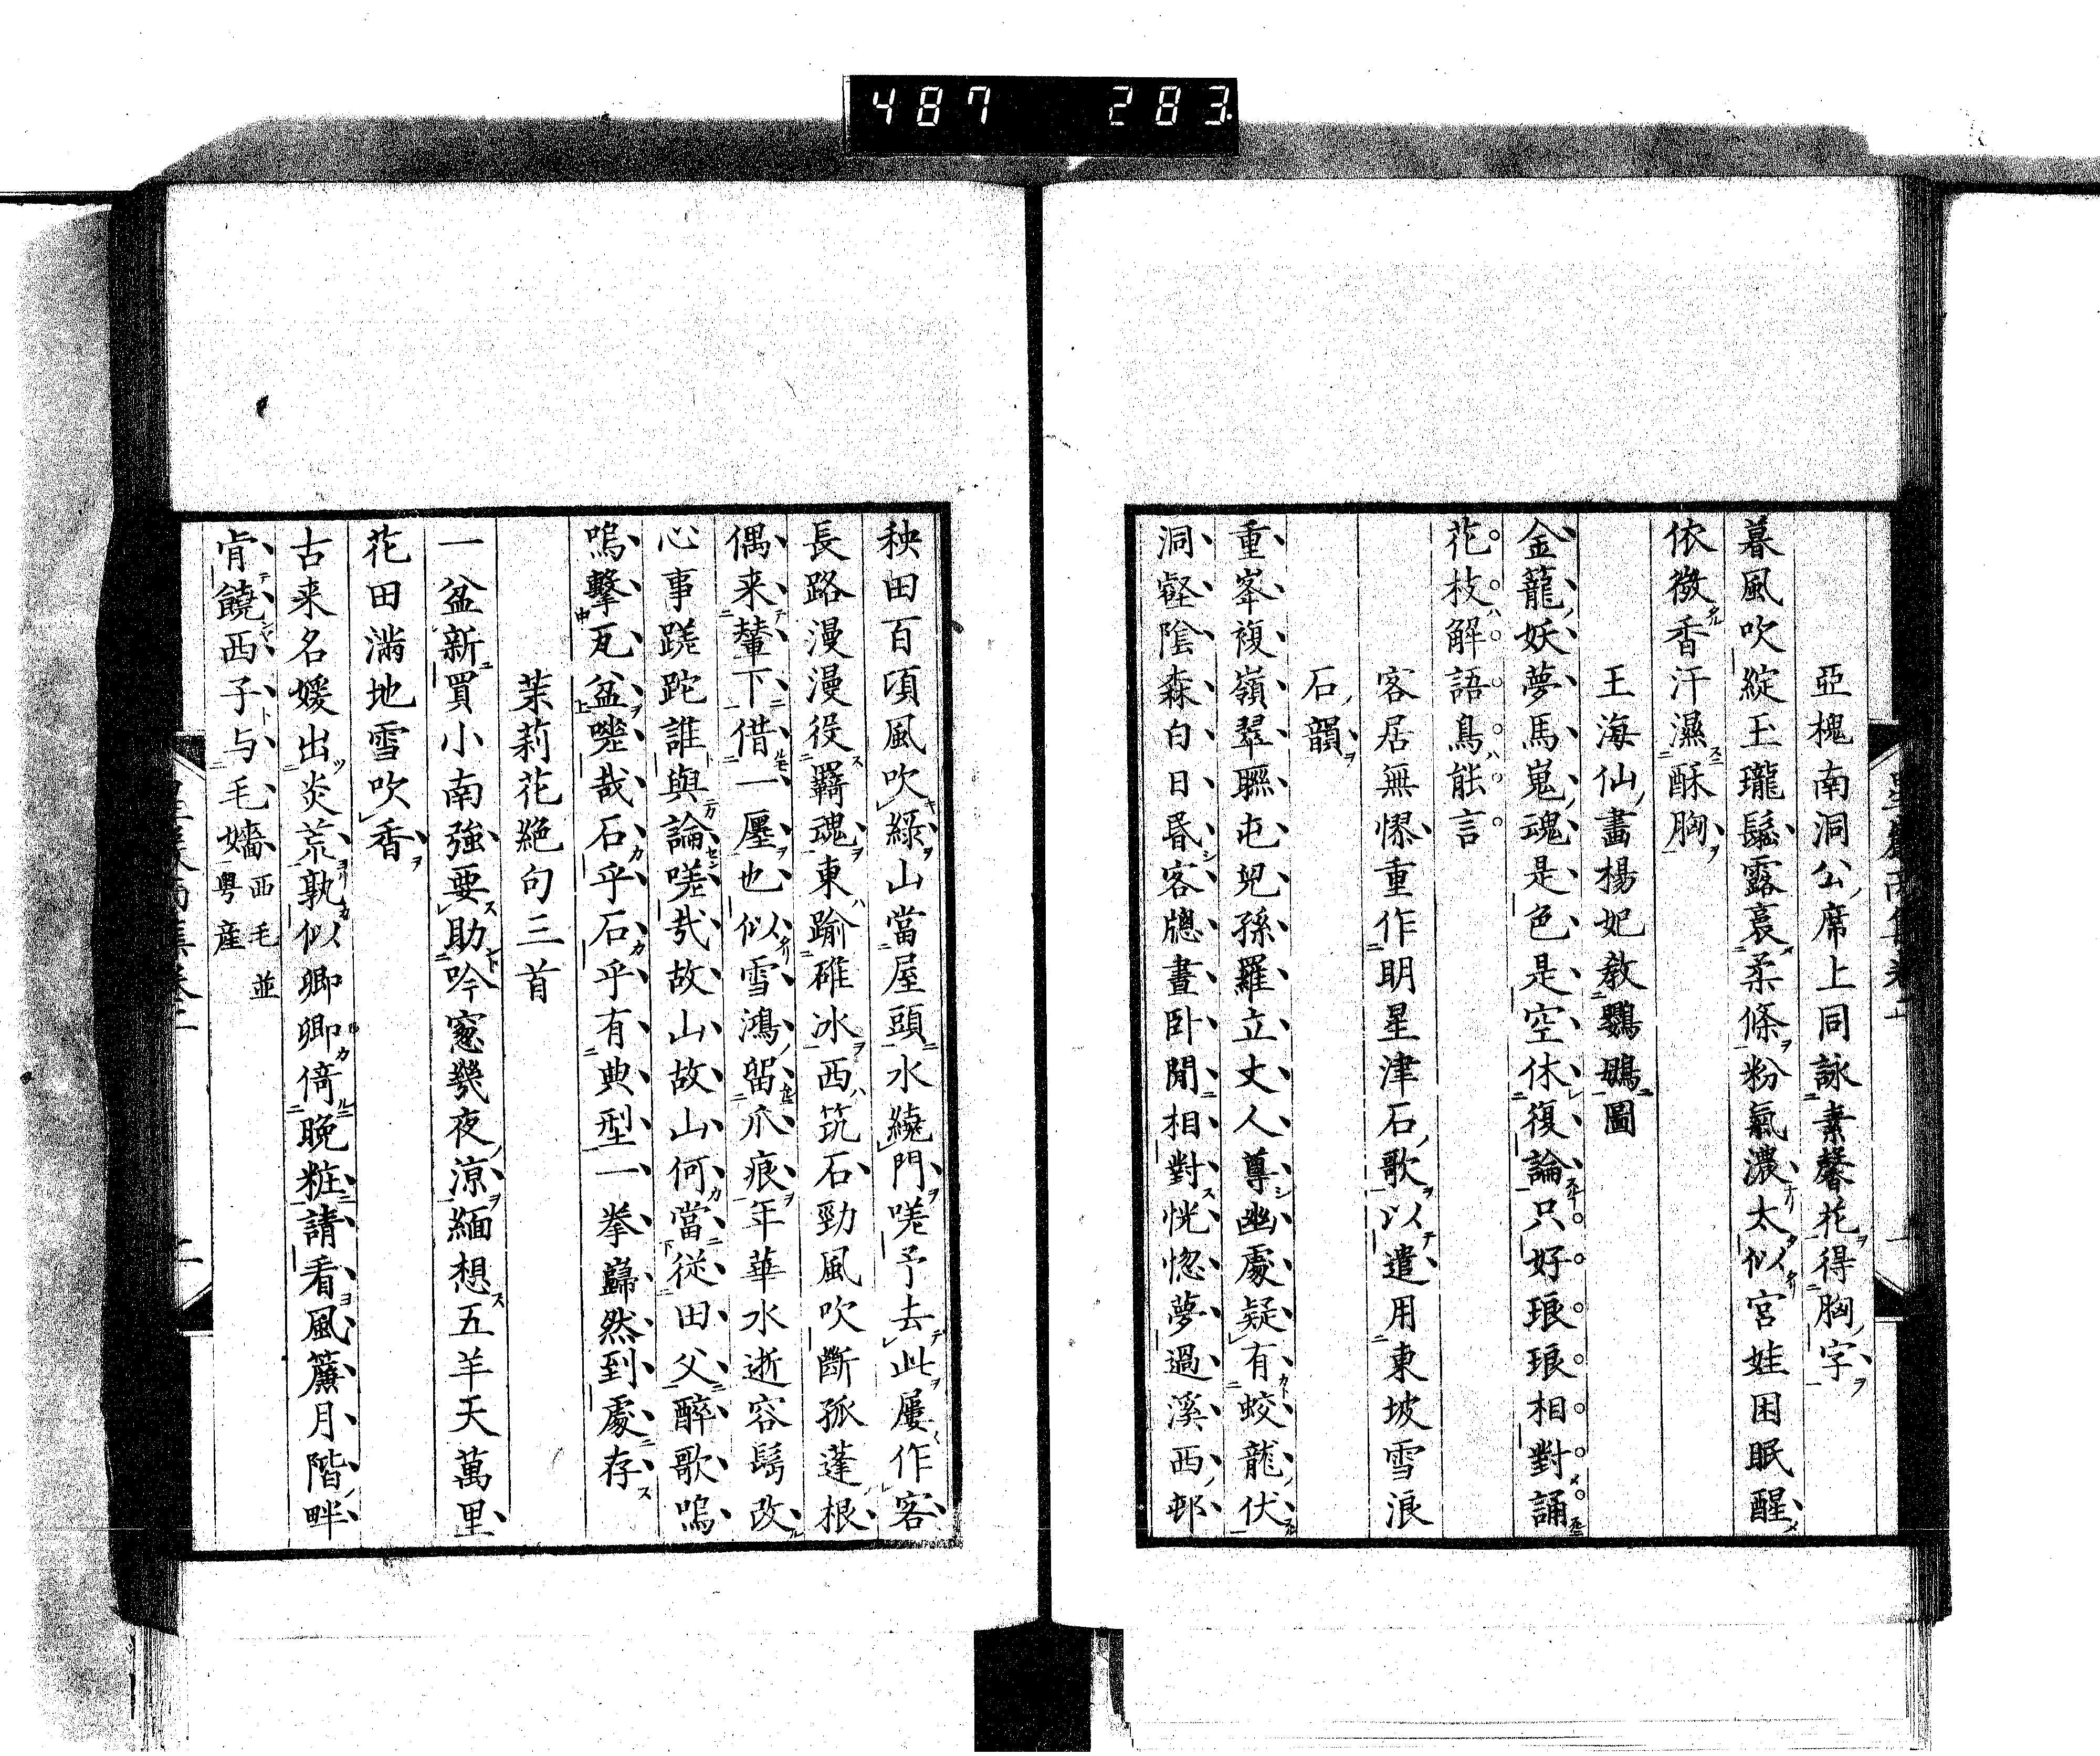 487 283
亞槐南洞公席上同詠素馨花得胸字
暮風吹綻玉瓏鬆露裛柔條粉氣濃太似宮娃困眠醒
依微香汗濕酥胸
王海仙畫楊妃教鸚鵡圖
金籠妖夢馬嵬魂是色是空休復論只好琅琅相對誦
花枝解語鳥能言
客居無憀重作明星津石歌以遣用東坡雪浪
石韻
重峯複嶺翠聯屯兒孫羅立丈人尊幽處疑有蛟龍伏
洞壑陰森白日昏客牕晝臥閒相對恍惚夢過溪西邨
秧田百頃風吹綠山當屋頭水繞門嗟予去此屢作客
長路漫漫役羇魂東踰碓冰西筑石勁風吹斷孤蓬根
偶来輦下借一廛也似雪鴻留爪痕年華水逝容髩改
心事蹉跎誰與論嗟哉故山故山何當從田父醉歌嗚
嗚擊瓦盆嗟哉石乎石乎有典型一拳巋然到處存
茉莉花絕句三首
一盆新買小南強要助吟窓幾夜涼緬想五羊天萬里
花田滿地雪吹香
古来名媛出炎荒孰似卿卿倚晚粧請看風簾月階畔
肯饒西子与毛嬙西毛並粤產
二